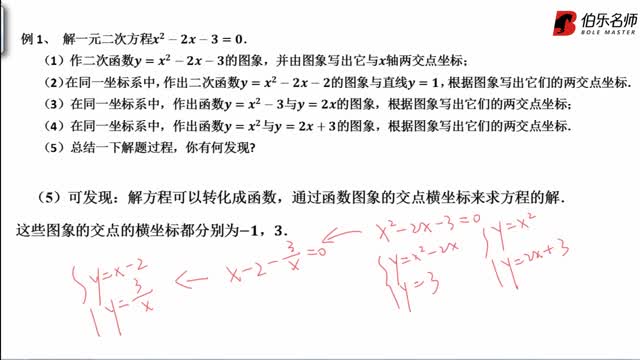 伯乐名师
BOLE MASTER
例 1、 解一元二次方程x² − 2x − 3 = 0.
（1）作二次函数y = x² − 2x − 3的图象，并由图象写出它与x轴两交点坐标；
（2）在同一坐标系中，作出二次函数y = x² − 2x − 2的图象与直线y = 1，根据图象写出它们的两交点坐标.
（3）在同一坐标系中，作出函数y = x² − 3与y = 2x的图象，根据图象写出它们的两交点坐标；
（4）在同一坐标系中，作出函数y = x²与y = 2x + 3的图象，根据图象写出它们的两交点坐标.
（5）总结一下解题过程，你有何发现?
（5）可发现：解方程可以转化成函数，通过函数图象的交点横坐标来求方程的解.
这些图象的交点的横坐标都分别为−1，3.
x²-2x-3=0
y=x²
y=2x+3
y=x²-2x
y=3
x-2-3/x=0
y=x-2
y=3/x